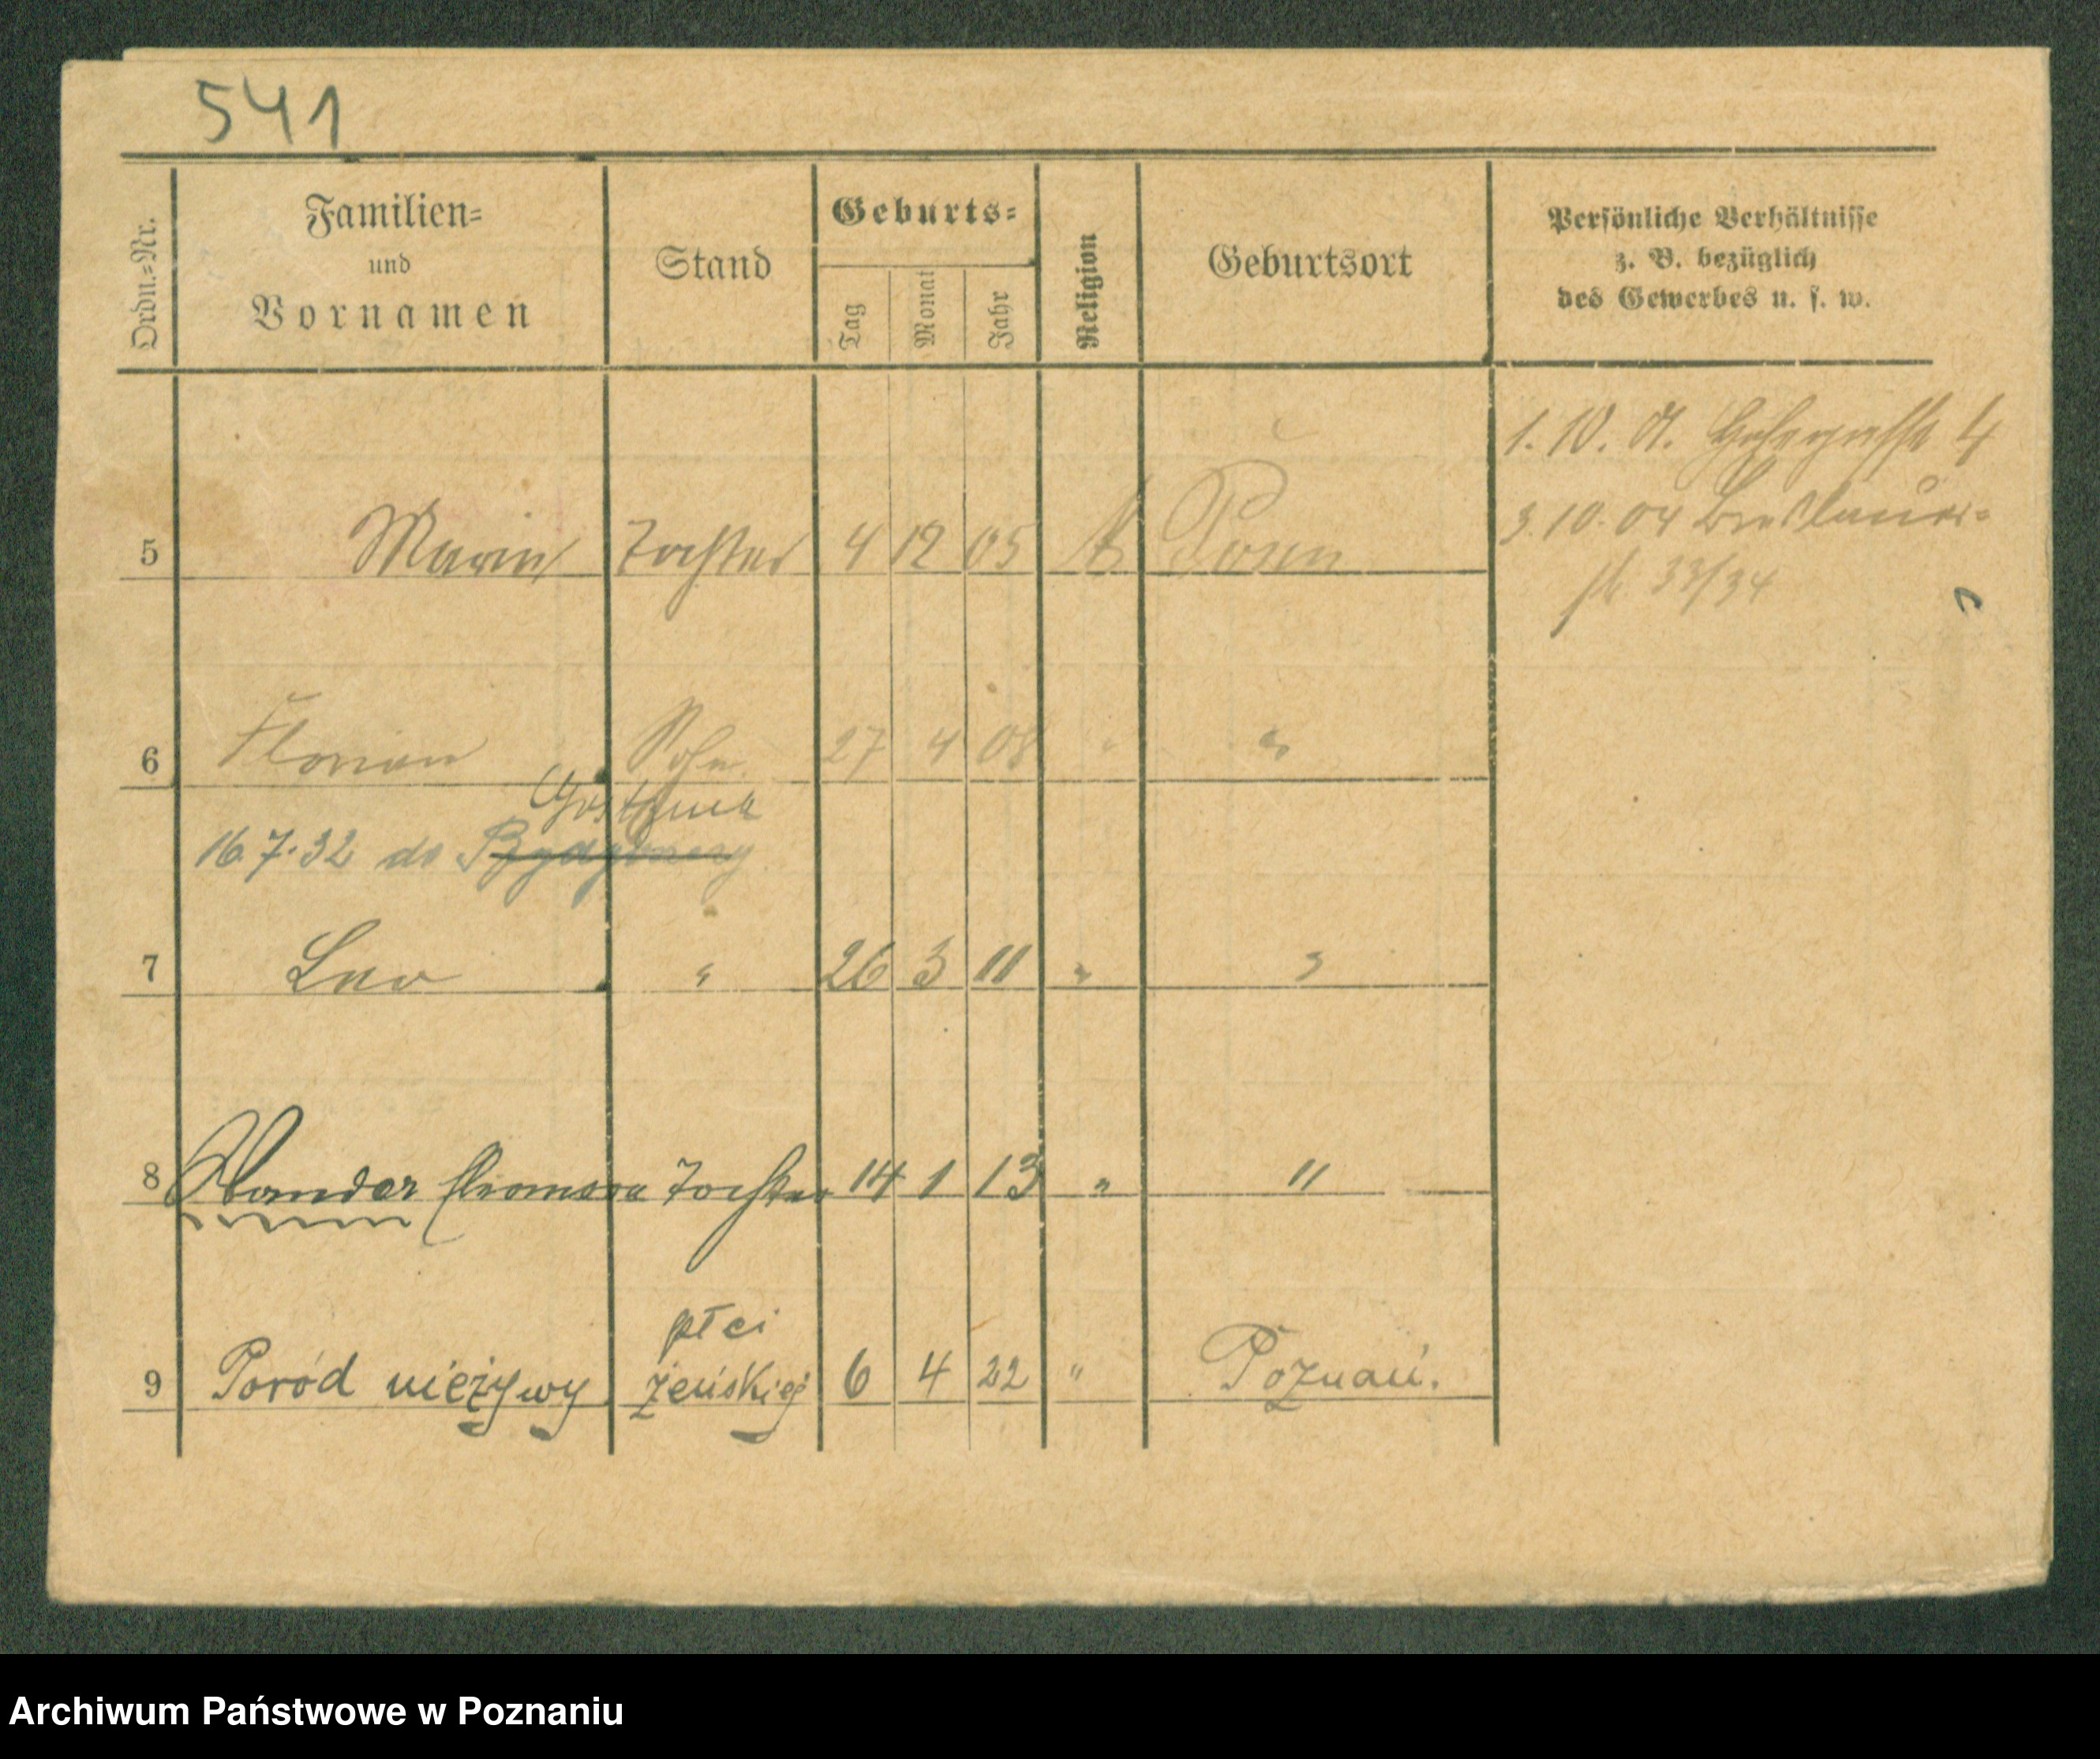 541
Ordn.=Nr.
Familien=
und
Vornamen
Stand
Geburts=
Tag
Monat
Jahr
Religion
Geburtsort
Persönliche Verhältnisse
z. B. bezüglich
des Gewerbes u. s. w.
1. 10. 4
3.10.04 Breslauer=
str 33/34
5 Marie Tochter 4 12 05 k Posen
6 Florian Sohn 27 4 08 " "
Gostynia
16.7.32 do Bydgoszczy
7 Leo " 26 3 11 " "
8 Wanda Tochter 14 1 13 " "
płci
9 Poród nieżywy żeńskiej 6 4 22 " Poznań.
Archiwum Państwowe w Poznaniu